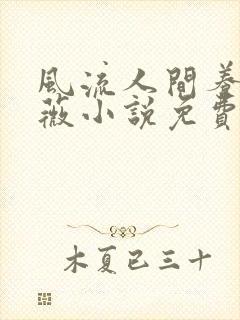 風流人間養
薇小說免費
木夏已三十